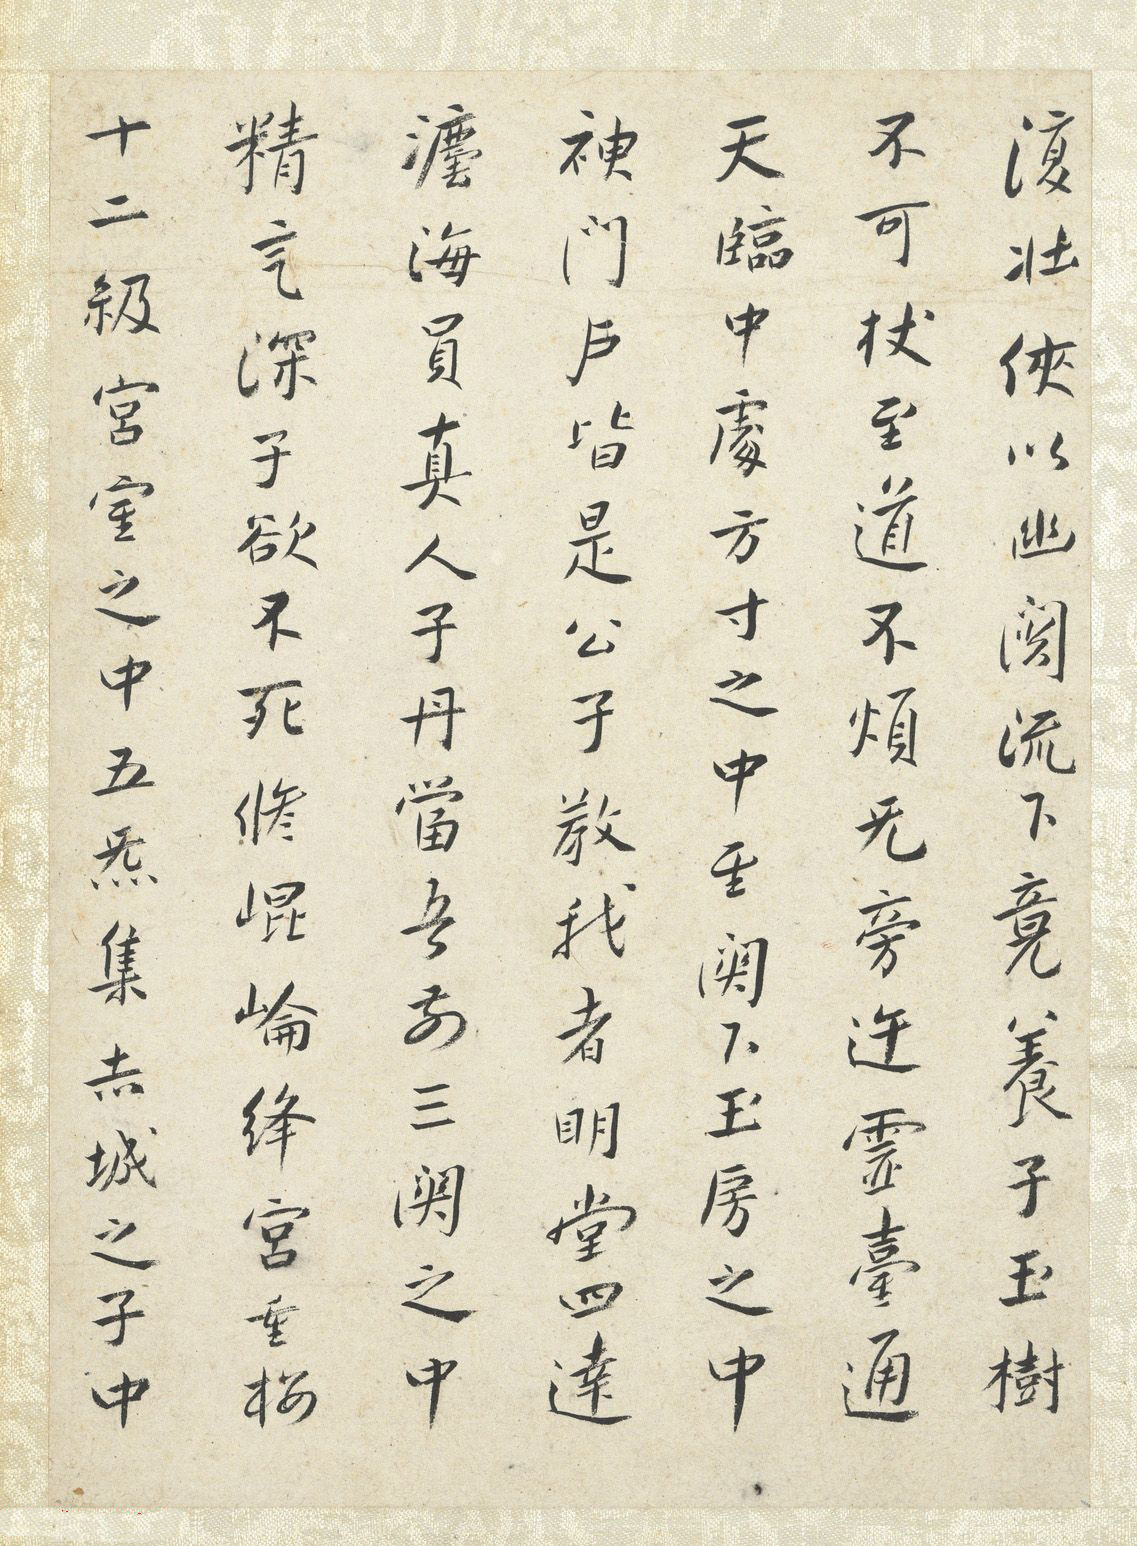 復壯俠以幽闕流下竟養子玉樹
不可杖至道不煩无旁迕靈臺通
天臨中處方寸之中至關下玉房之中
神門戶皆是公子敎我者明堂四達
灋海員真人子丹當吾前三關之中
精气深子欲不死脩崐崘絳宮重樓
十二級宮室之中五炁集赤城之子中